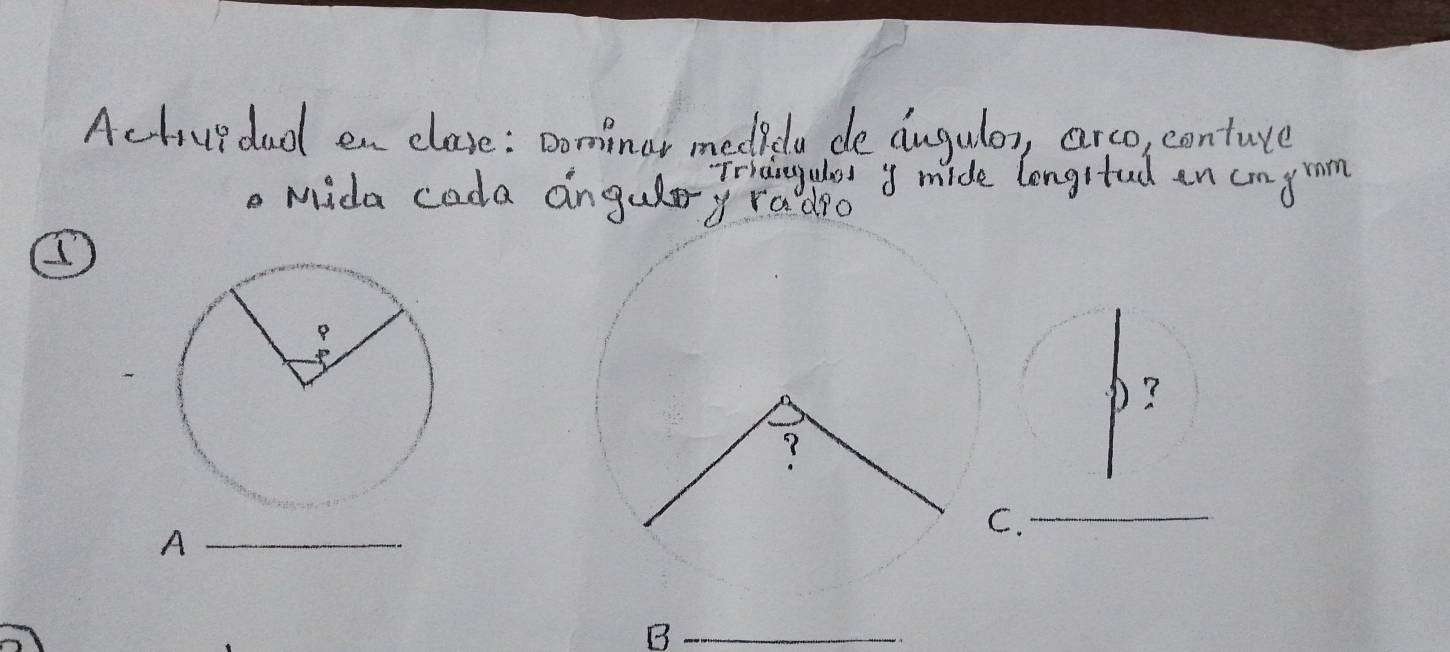 Actividad en clase: Dominar medida de ángulos, arco, contuye
Triángulos y mide longitud en cm y mm
• Mida cada ángulo y radio
1
?
?
?
A
C.
B